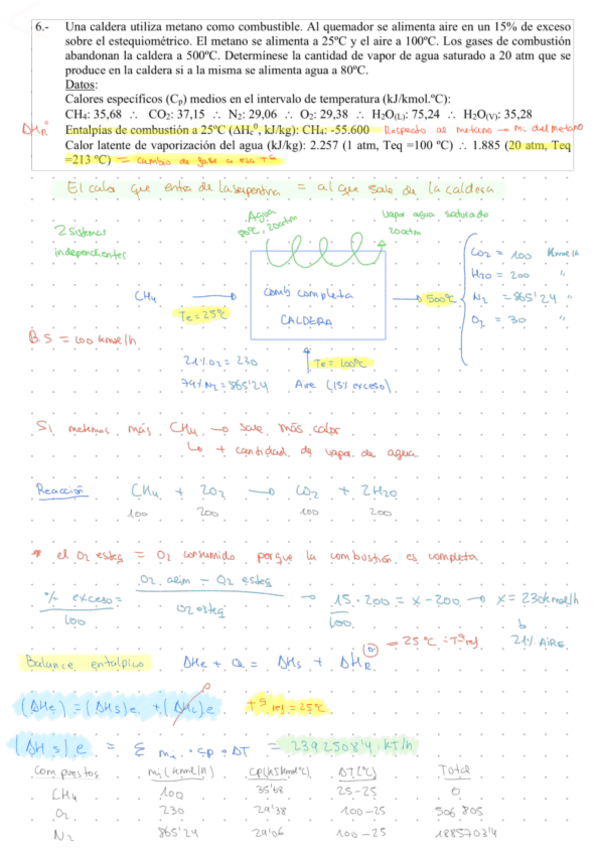 6.- Una caldera utiliza metano como combustible. Al quemador se alimenta aire en un 15% de exceso
sobre el estequiométrico. El metano se alimenta a 25ºC y el aire a 100ºC. Los gases de combustión
abandonan la caldera a 500ºC. Determínese la cantidad de vapor de agua saturado a 20 atm que se
produce en la caldera si a la misma se alimenta agua a 80ºC.
Datos:
Calores específicos (Cp) medios en el intervalo de temperatura (kJ/kmol.ºC):
CH4: 35,68 ∴ CO2: 37,15 ∴ N2: 29,06 ∴ O2: 29,38 ∴ H2O(L): 75,24 ∴ H2O(V): 35,28
ΔHR° Entalpías de combustión a 25ºC (ΔHc⁰, kJ/kg): CH4: -55.600 Respecto al metano → mi del metano
Calor latente de vaporización del agua (kJ/kg): 2.257 (1 atm, Teq =100 ºC) ∴ 1.885 (20 atm, Teq
=213 ºC) = cambio de fase a esa Tª
El calor que entra de la serpentina = al que sale de la caldera
2 sistemas
independientes
Agua
80ºC, 20atm
vapor agua saturado
20atm
CH4
Te = 25ºC
Comb completa
CALDERA
500ºC
CO2 = 100 Kmol/h
H2O = 200 "
N2 = 865'24 "
O2 = 30 "
BS = 100 kmol/h
21% O2 = 230
79% N2 = 865'24
Te = 100ºC
Aire (15% exceso)
Si metemos más CH4 → sale más calor
↳ + cantidad de vapor de agua
Reacción CH4 + 2O2 → CO2 + 2H2O
100 200 100 200
* el O2 esteq = O2 consumido porque la combustión es completa
% exceso/100 = (O2 alim - O2 esteq)/O2 esteq → 15/100 · 200 = x - 200 → x = 230 kmol/h
21% AIRE
Balance entálpico ΔHe + Q = ΔHs + ΔHR° = 25ºC = Tª ref
(ΔHe) = (ΔHs)e + (ΔHL)e Tª ref = 25ºC
(ΔHs)e = Σ mi · cp · ΔT = 2392508'4 kJ/h
Compuestos mi (kmol/h) Cp (kJ/kmolºC) ΔT (ºC) Total
CH4 100 35'68 25-25 0
O2 230 29'38 100-25 506 805
N2 865'24 29'06 100-25 1885703'4